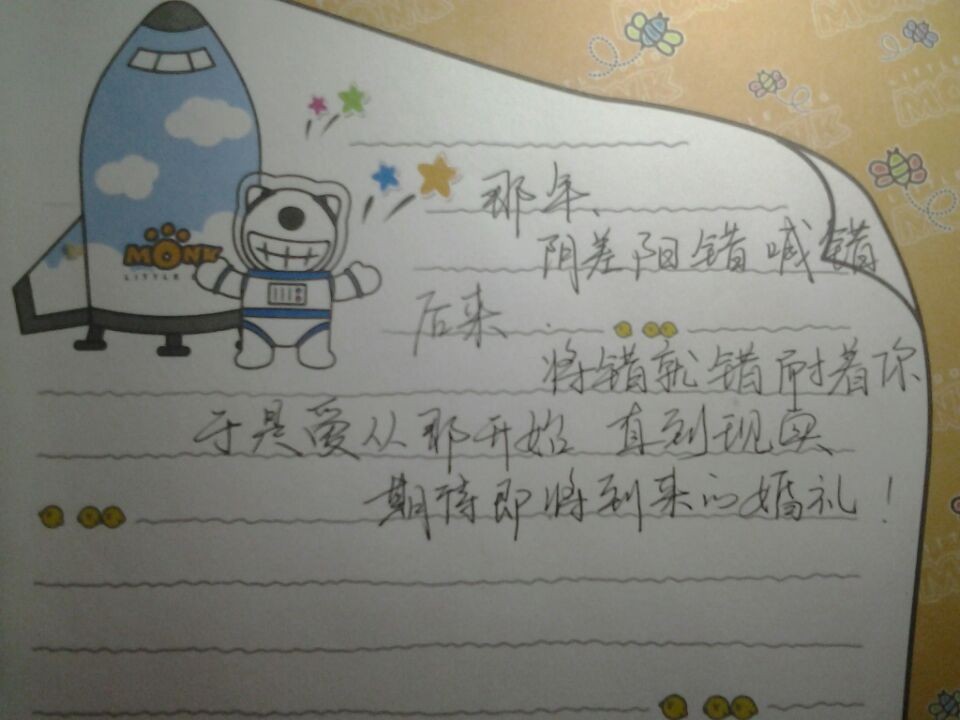 MONK
LITTLE
那年、
阴差阳错喊错
后来
将错就错耐着你
于是爱从那开始 直到现实
期待即将到来的婚礼！